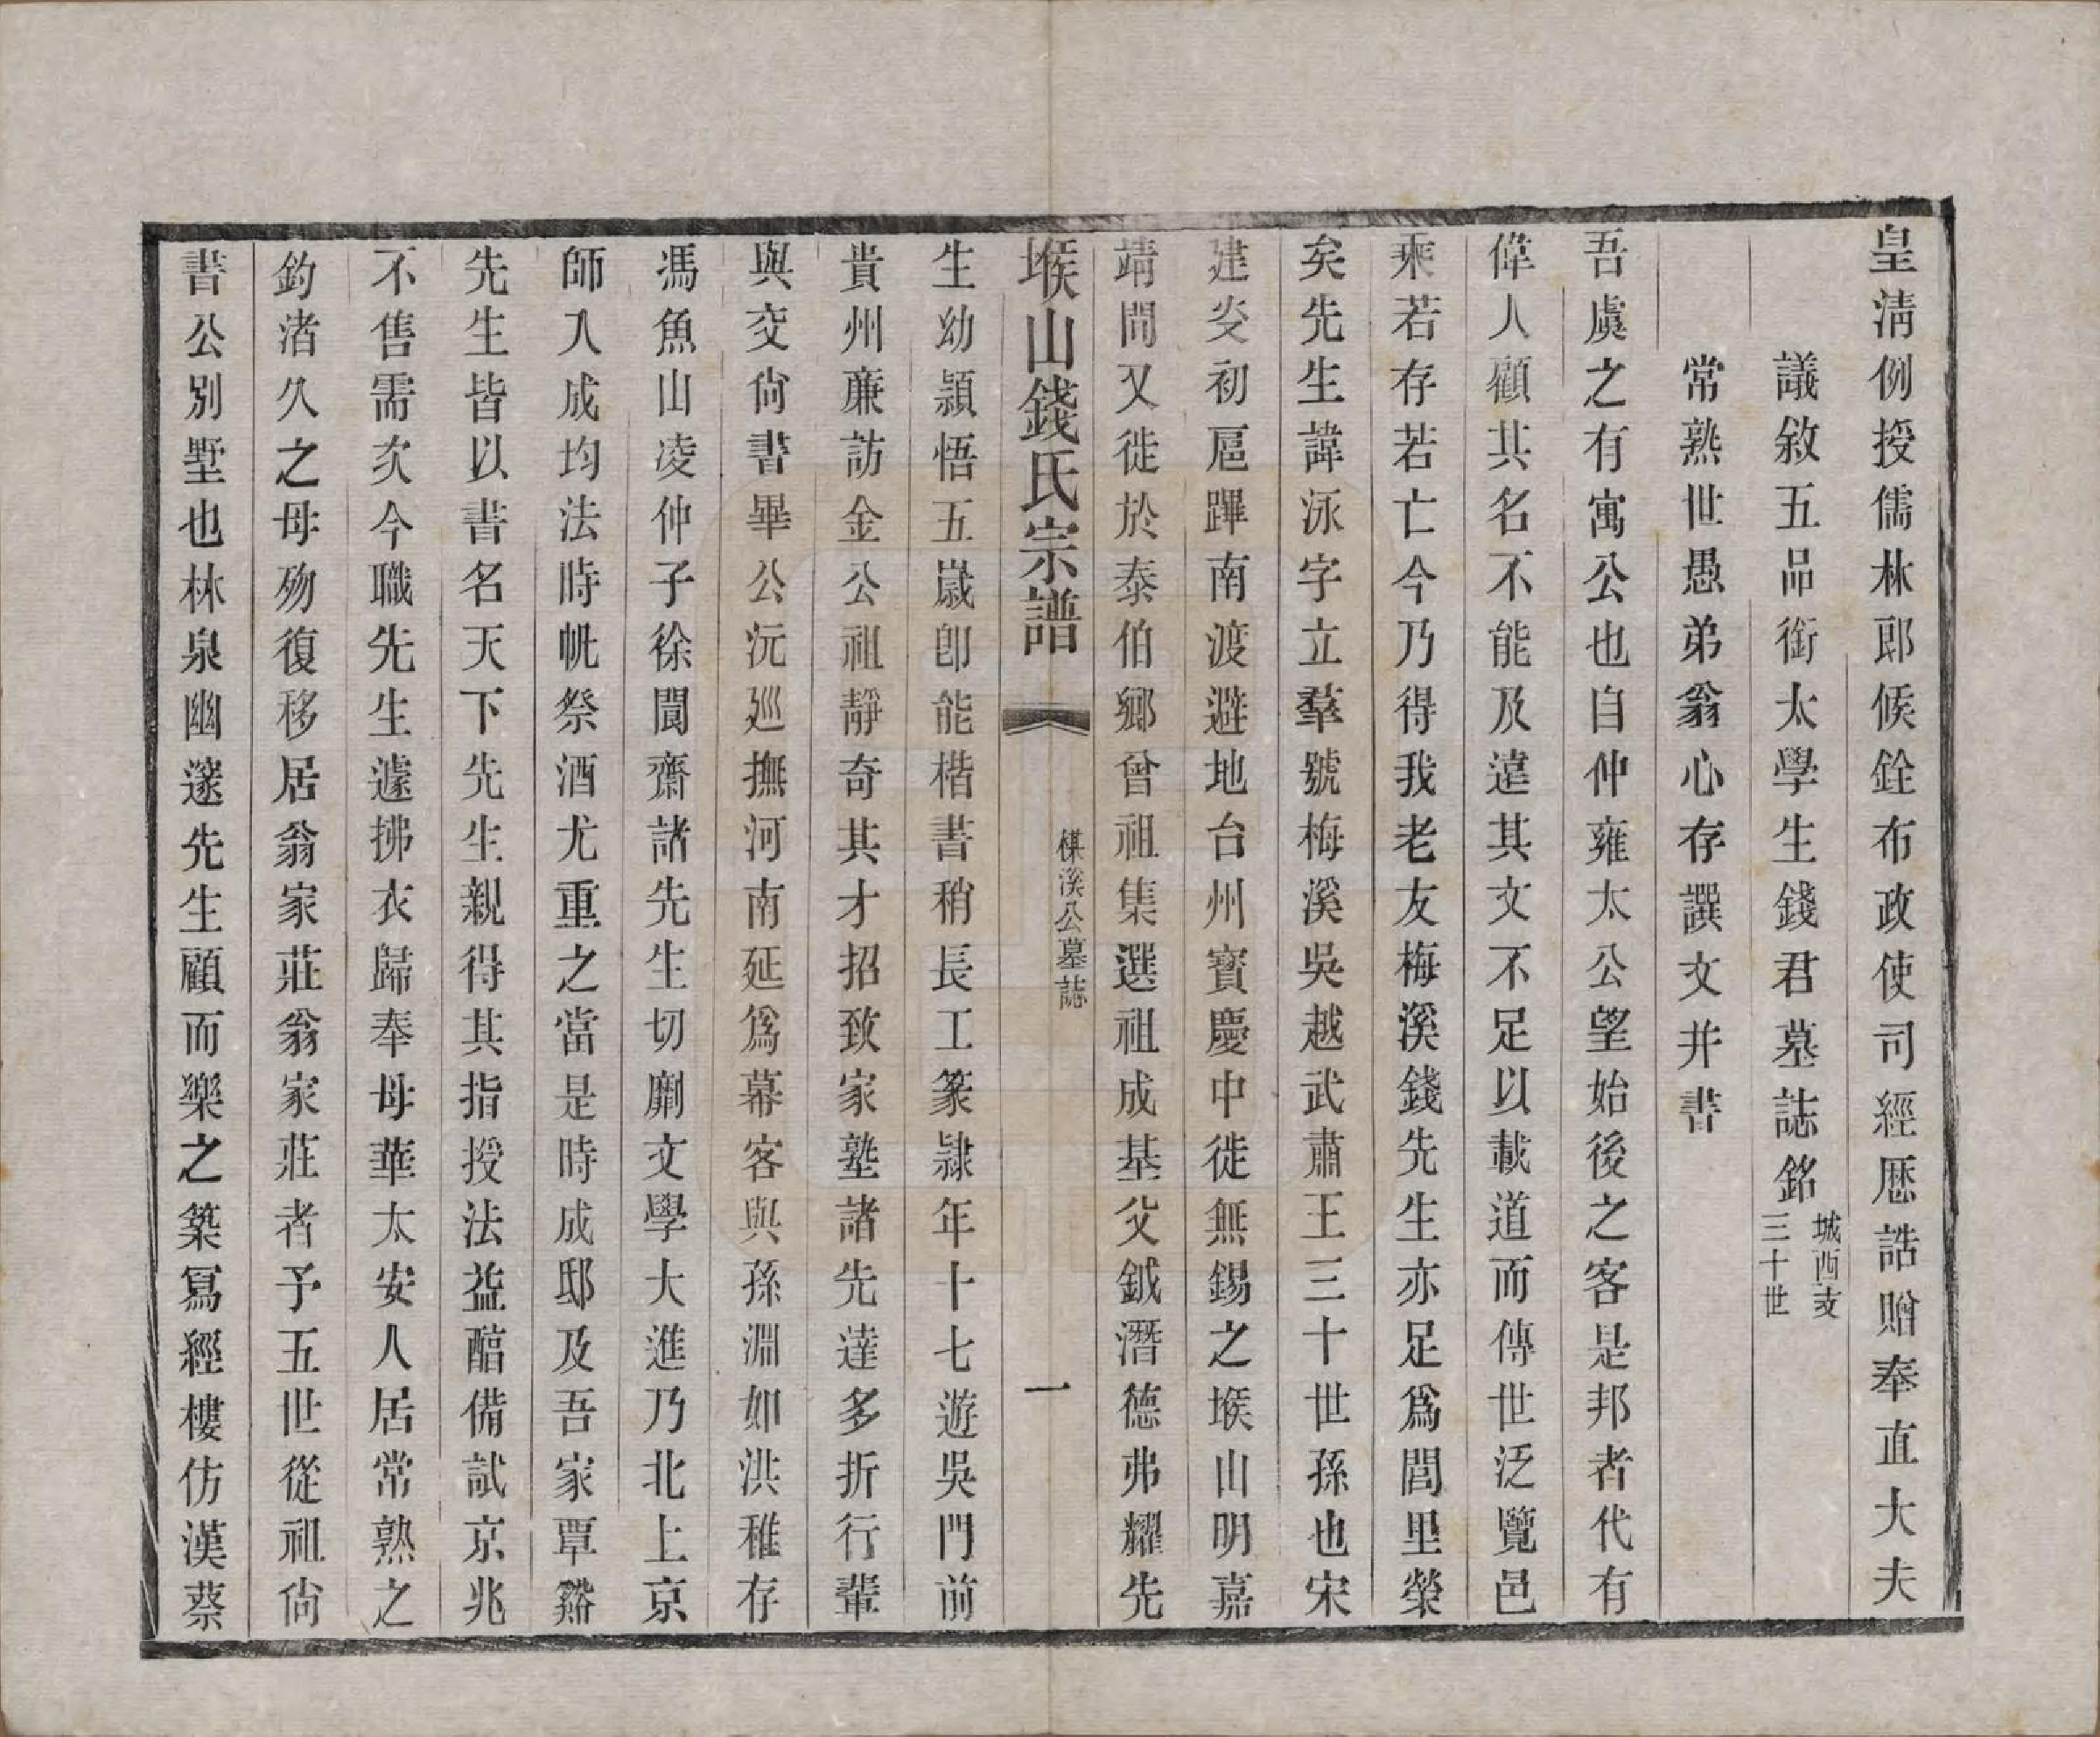 皇清例授儒林郎候銓布政使司經歷誥贈奉直大夫
議敘五品銜太學生錢君墓誌銘城西支三十世
常熟世愚弟翁心存譔文并書
吾虞之有寓公也自仲雍太公望始後之客是邦者代有
偉人顧其名不能及遠其文不足以載道而傳世泛覽邑
乘若存若亡今乃得我老友梅溪錢先生亦足爲閭里榮
矣先生諱泳字立羣號梅溪吳越武肅王三十世孫也宋
建炎初扈蹕南渡避地台州寶慶中徙無錫之堠山明嘉
靖間又徙於泰伯鄉曾祖集選祖成基父鉞潛德弗耀先
堠山錢氏宗譜
楳溪公墓誌
一
生幼穎悟五嵗即能楷書稍長工篆隷年十七遊吳門前
貴州廉訪金公祖靜奇其才招致家塾諸先達多折行輩
與交尙書畢公沅巡撫河南延爲幕客與孫淵如洪稚存
馮魚山凌仲子徐閬齋諸先生切劘文學大進乃北上京
師入成均法時帆祭酒尤重之當是時成邸及吾家覃谿
先生皆以書名天下先生親得其指授法益醕備試京兆
不售需次今職先生遽拂衣歸奉母華太安人居常熟之
釣渚久之母歿復移居翁家莊翁家莊者予五世從祖尙
書公別墅也林泉幽邃先生顧而樂之築寫經樓仿漢蔡